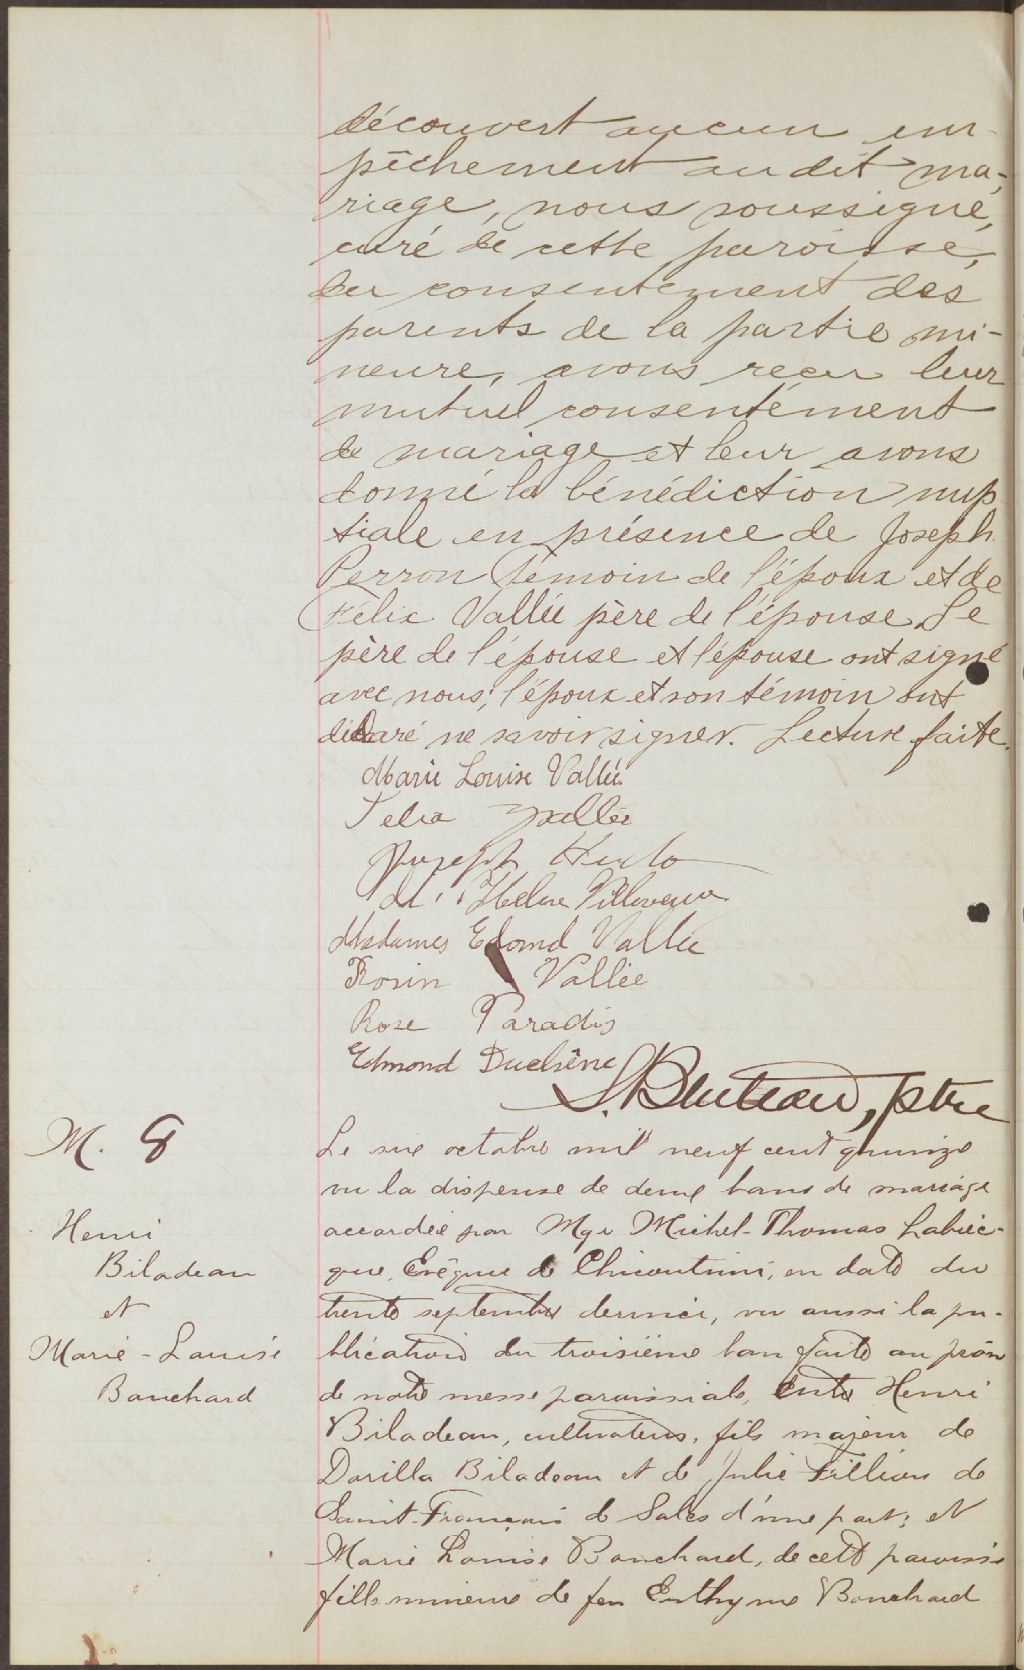 découvert aucun em-
pêchement au dit ma-
riage, nous soussigné,
curé de cette paroisse,
du consentement des
parents de la partie mi-
neure, avons reçu leur
mutuel consentement
de mariage et leur avons
donné la bénédiction nup
tiale en présence de Joseph
Perron témoin de l'époux et de
Félix Vallée père de l'épouse. Le
père de l'épouse et l'épouse ont signé
avec nous; l'époux et son témoin ont
déclaré ne savoir signer. Lecture faite.
Marie Louise Vallée
Felix Vallée
Joseph
Helene Villeneuve
Madames Edmond Vallée
Rosin Vallée
Rose Paradis
Edmond Duchêne
S. Bluteau, ptre
M. 8
Henri
Biladeau
et
Marie-Louise
Bouchard
Le six octobre mil neuf cent quinze
vu la dispense de deux bans de mariage
accordée par Mgr Michel-Thomas Labrec-
que, Evêque de Chicoutimi, en date du
trente septembre dernier, vu aussi la pu-
blication du troisième ban faite au prône
de notre messe paroissiale, Entre Henri
Biladeau, cultivateur, fils majeur de
Dorilla Biladeau et de Julie Fillion de
Saint-François de Sales d'une part; et
Marie Louise Bouchard, de cette paroisse
fille mineure de feu Euthyme Bouchard